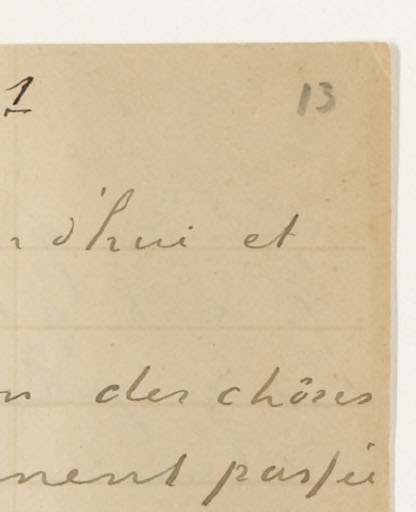 1 13
rd'hui et
n des chôses
ment passée